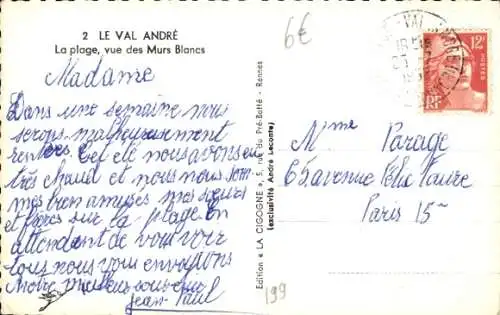 2 LE VAL ANDRÉ
La plage, vue des Murs Blancs
6€
12F
POSTES
RF
Madame
Dans une semaine nous
serons malheureusement
rentrés. Cet été nous avons eu
très chaud et nous nous som
mes bien amusés mes sœurs
et frères sur la plage en
attendant de vous voir
tous nous vous envoyons
Notre meilleur souvenir
Jean-Paul
Edition « LA CIGOGNE », 5, rue du Pré-Botté - Rennes
(exclusivité André Leconte)
Mme Parage
65 avenue Félix Faure
Paris 15
199